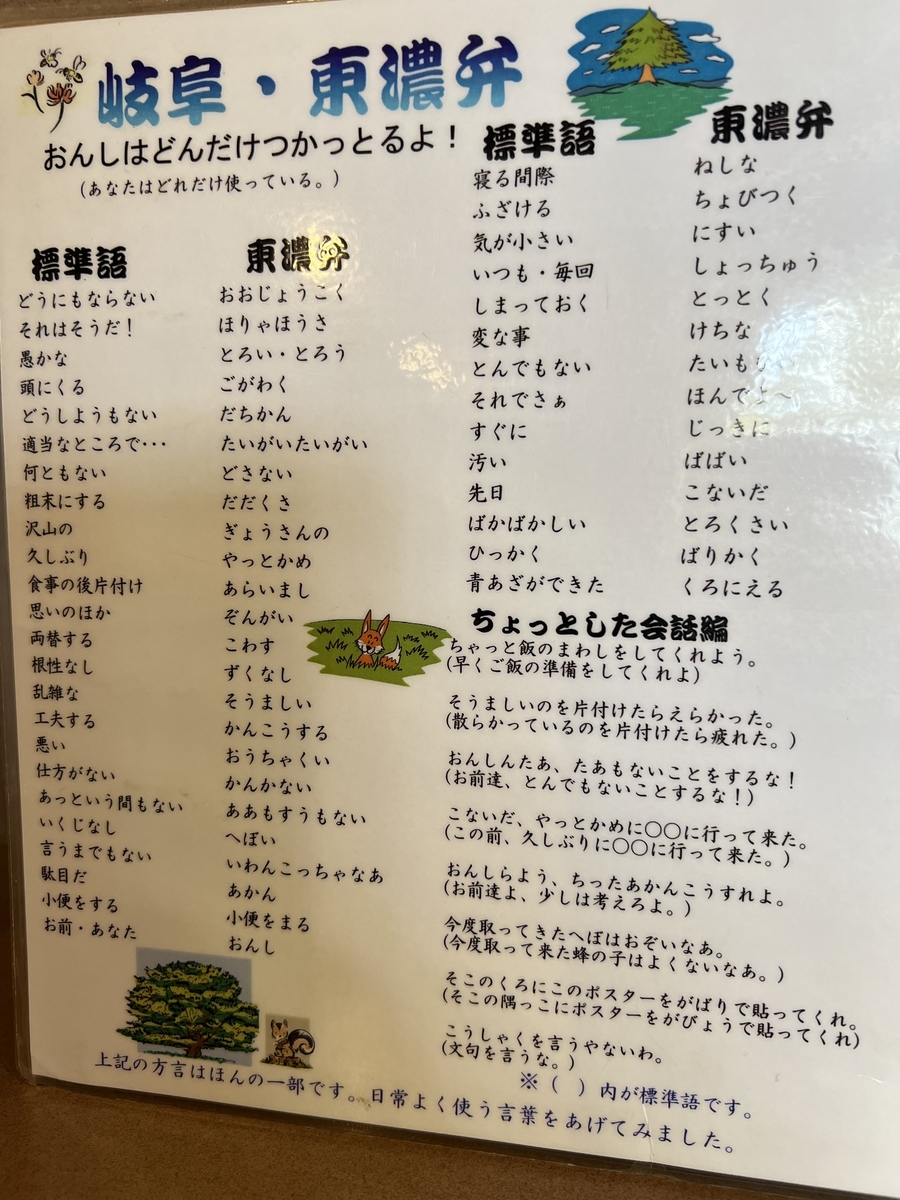 岐阜・東濃弁
おんしはどんだけつかっとるよ！
（あなたはどれだけ使っている。）
標準語 東濃弁
どうにもならない おおじょうこく
それはそうだ！ ほりゃほうさ
愚かな とろい・とろう
頭にくる ごがわく
どうしようもない だちかん
適当なところで･･･ たいがいたいがい
何ともない どさない
粗末にする だだくさ
沢山の ぎょうさんの
久しぶり やっとかめ
食事の後片付け あらいまし
思いのほか ぞんがい
両替する こわす
根性なし ずくなし
乱雑な そうましい
工夫する かんこうする
悪い おうちゃくい
仕方がない かんかない
あっという間もない ああもすうもない
いくじなし へぼい
言うまでもない いわんこっちゃなあ
駄目だ あかん
小便をする 小便をまる
お前・あなた おんし
標準語 東濃弁
寝る間際 ねしな
ふざける ちょびつく
気が小さい にすい
いつも・毎回 しょっちゅう
しまっておく とっとく
変な事 けちな
とんでもない たいも
それでさぁ ほんでよ～
すぐに じっきに
汚い ばばい
先日 こないだ
ばかばかしい とろくさい
ひっかく ばりかく
青あざができた くろにえる
ちょっとした会話編
ちゃっと飯のまわしをしてくれよう。
(早くご飯の準備をしてくれよ)
そうましいのを片付けたらえらかった。
(散らかっているのを片付けたら疲れた。)
おんしんたあ、たあもないことをするな！
(お前達、とんでもないことするな！)
こないだ、やっとかめに〇〇に行って来た。
(この前、久しぶりに〇〇に行って来た。)
おんしらよう、ちったあかんこうすれよ。
(お前達よ、少しは考えろよ。)
今度取ってきたへぼはおぞいなあ。
(今度取って来た蜂の子はよくないなあ。)
そこのくろにこのポスターをがばりで貼ってくれ。
(そこの隅っこにポスターをがびょうで貼ってくれ)
こうしゃくを言うやないわ。
(文句を言うな。)
※（　）内が標準語です。
上記の方言はほんの一部です。日常よく使う言葉をあげてみました。